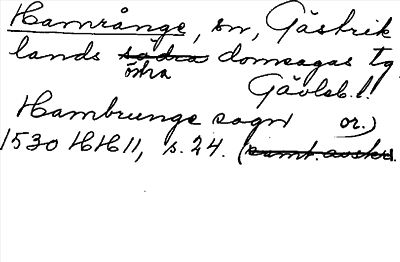 Hamrånge, sn, Gästrik
lands södra domsagas tg
östra
Gävleb. l.
Hambrunge sogn or.)
1530 HH II, s. 24. (samt. avskr.